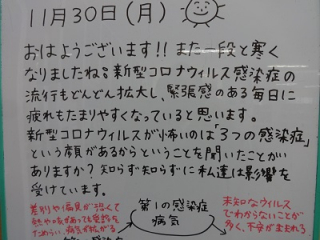 11月30日(月)
おはようございます!! また一段と寒く
なりましたね。新型コロナウィルス感染症の
流行もどんどん拡大し、緊張感のある毎日に
疲れもたまりやすくなっていると思います。
新型コロナウィルスが怖いのは「3つの感染症」
という顔があるからということを聞いたことがい
ありますか? 知らず知らずに私達は影響を
受けています。
第1の感染症
病気
差別や偏見が強くて
未知なウィルス
でわからないことが
多く、不安がまれる